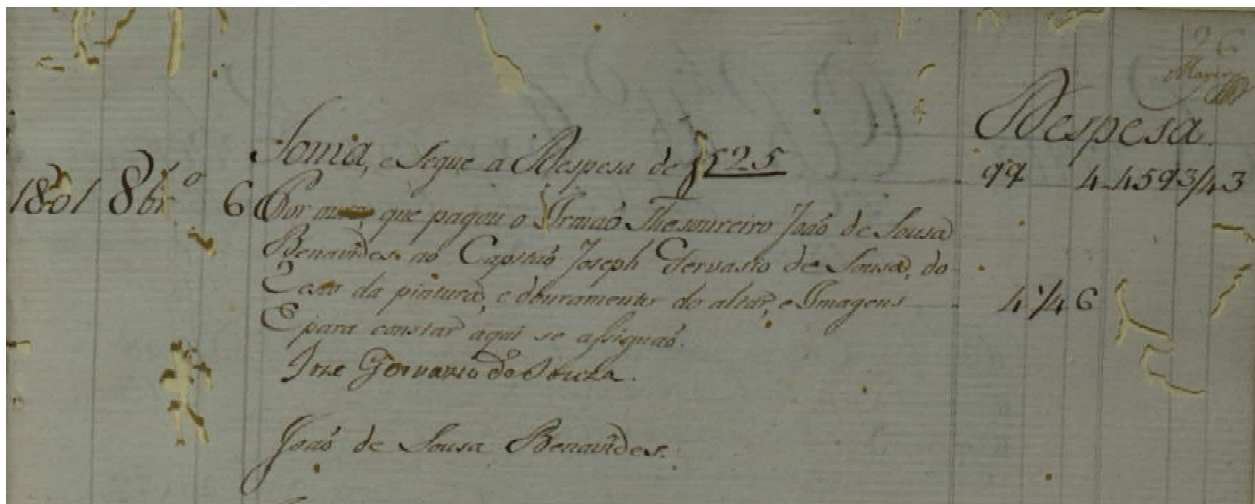 96
Despesa
Soma, e Segue a Despesa de f 525 99 4.4593/43
1801 8br.o 6 Por que pagou o Irmaõ Thesoureiro Joaõ de Sousa
Benavides ao Capitaõ Joseph Gervasio de Sousa, do
resto da pintura, e douramento do altar, e Imagens 4"/46
E para constar aqui se assignaõ.
Joze Gervazio de Souza.
Joaõ de Sousa Benavides.